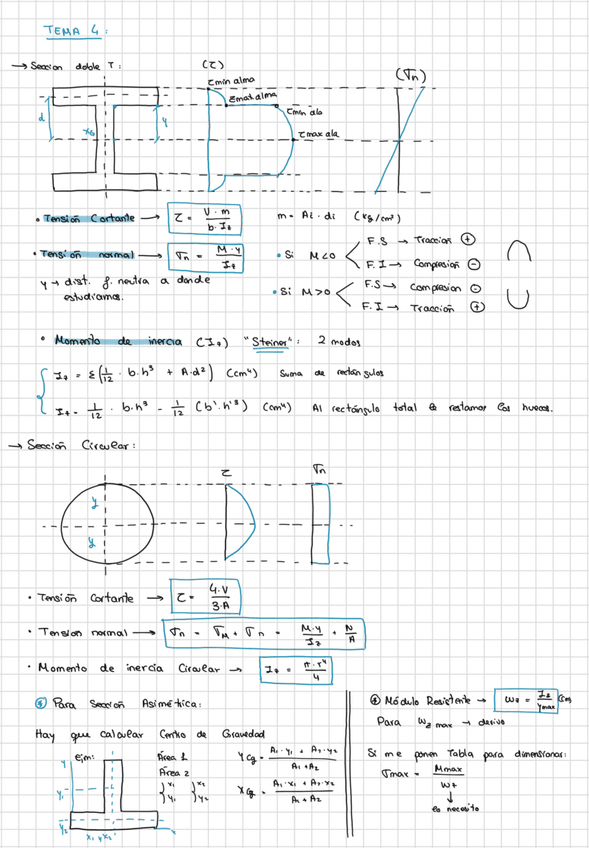 TEMA 4:
→ Seccion doble T:
(τ)
(σn)
τmin alma
τmax alma
τmin ala
τmax ala
d
xG
y
• Tensión Cortante → τ = V·m / b·Iz
m = Ai·di (kg/cm³)
• Tensión normal → σn = M·y / Iz
• Si M<0
F.S → Traccion ⊕
F.I → Compresion ⊖
y → dist. f. neutra a donde
estudiamos.
• Si M>0
F.S → Compresion ⊖
F.I → Tracción ⊕
• Momento de inercia (Iz) "Steiner": 2 modos
Iz = Σ(1/12 · b·h³ + A·d²) (cm⁴) Suma de rectángulos
Iz = 1/12 · b·h³ - 1/12 (b'·h'³) (cm⁴) Al rectángulo total le restamos los huecos.
→ Sección Circular:
τ
σn
y
y
• Tensión Cortante → τ = 4·V / 3·A
• Tension normal → σn = σM + σn = M·y / Iz + N / A
• Momento de inercia Circular → Iz = π·r⁴ / 4
Para Sección Asimética:
Hay que calcular Centro de Gravedad
ejm:
y
y1
y2
x1 y x2
x
Área 1
Área 2
{ x1 y1 } { x2 y2
Ycg = A1·y1 + A2·y2 / A1+A2
Xcg = A1·x1 + A2·x2 / A1+A2
Módulo Resistente → Wz = Iz / ymax
Para Wz max → derivo
Si me ponen Tabla para dimensionar:
σmax = Mmax / Wz
↓
lo necesito